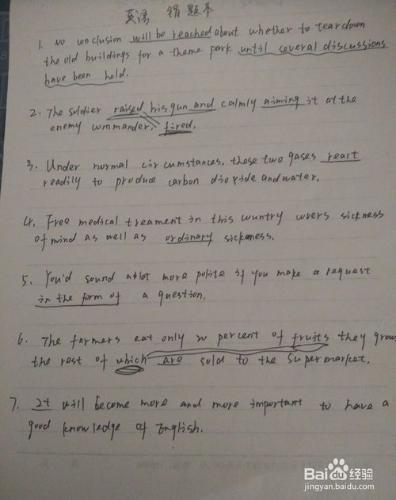 英语 错题本
1. No conclusion will be reached about whether to tear down
the old buildings for a theme park until several discussions
have been held.
2. The soldier raised his gun and calmly aiming it at the
enemy commander, fired.
3. Under normal circumstances, these two gases react
readily to produce carbon dioxide and water.
4. Free medical treament in this country covers sickness
of mind as well as ordinary sickeness.
5. You'd sound a lot more polite if you make a request
in the form of a question.
6. The farmers eat only 20 percent of fruits they grow
the rest of which are sold to the supermarket.
7. It will become more and more important to have a
good knowledge of English.
Bai du 经验
jingyan.baidu.com